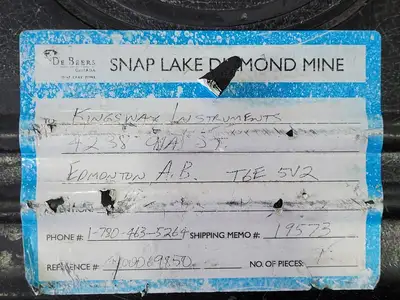 DE BEERS
CANADA
SNAP LAKE DIAMOND MINE
TO: KINGSWAY INSTRUMENTS
4238 91A ST.
EDMONTON A.B. T6E 5V2
PHONE #: 1-780-463-5264 SHIPPING MEMO #: 19573
REFERENCE # 400069850 NO. OF PIECES: 1